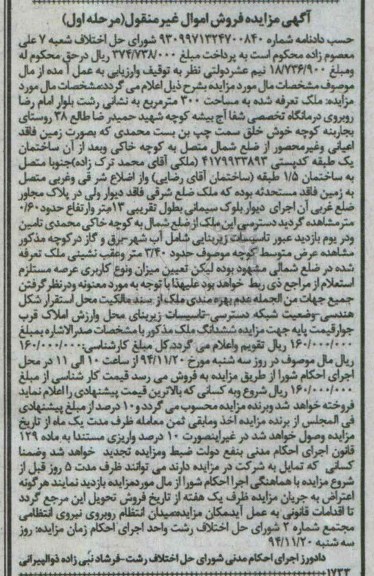 آگهی مزایده فروش اموال غیر منقول(مرحله اول)
حسب دادنامه شماره ۹۳۰۹۹۷۱۳۲۴۷۰۰۸۴۰ شورای حل اختلاف شعبه ۷ علی
معصوم زاده محکوم است به پرداخت مبلغ ۳۷۴/۷۳۸/۰۰۰ ریال درحق محکوم له
ومبلغ ۱۸/۷۳۶/۹۰۰ نیم عشردولتی نظر به توقیف وارزیابی به عمل آمده از مال
موصوف مشخصات مال مورد مزایده بشرح ذیل اعلام می گردد:مشخصات مال مورد
مزایده: ملک تعرفه شده به مساحت ۳۰۰ مترمربع به نشانی رشت بلوار امام رضا
روبروی درمانگاه تخصصی شفا آج بیشه کوچه شهید حمیدرضا طالع ۳۸ روستای
بجاربنه کوچه خوش خلق سمت چپ بن بست محمدی که بصورت زمین فاقد
اعیانی وغیرمحصور از ضلع شمال متصل به کوچه خاکی وبعد از آن ساختمان
یک طبقه کدپستی ۴۱۷۹۹۳۳۸۹۳ (ملکی آقای محمد ترک زاده)جنوبا متصل
به ساختمان ۱/۵ طبقه (ساختمان آقای رضایی) واز اضلاع شرقی وغربی متصل
به زمین فاقد مستحدثه بوده که ملک ضلع شرقی فاقد دیوار ولی در پلاک مجاور
ضلع غربی آن اجرای دیوار بلوک سیمانی بطول تقریبی ۱۳متر وارتفاع حدود ۰/۶۰
متر مشاهده گردید دسترسی این ملک از ضلع شمال به کوچه خاکی محمدی تامین
ودر یوم بازدید عبور تاسیسات زیربنایی شامل آب شهر-برق و گاز درکوچه مذکور
مشاهده عرض متوسط کوچه موصوف حدود ۳/۴۰ متر وعقب نشینی ملک تعرفه
شده در ضلع شمالی مشهود بوده لیکن تعیین میزان ونوع کاربری عرصه مستلزم
استعلام از مراجع ذی ربط خواهد بود علیهذا با توجه به مورد معنونه ودرنظر گرفتن
جمیع جهات من الجمله عدم بهره مندی ملک از سند مالکیت محل استقرار شکل
هندسی-وضعیت شبکه دسترسی-تاسیسات زیربنای محل وارزش املاک قرب
جوارقیمت پایه جهت مزایده ششدانگ ملک مذکور با مشخصات صدرالاشاره بمبلغ
۱۶۰/۰۰۰/۰۰۰ ریال تقویم واعلام می گردد.کل مبلغ کارشناسی:۱۶۰/۰۰۰/۰۰۰
ریال مال موصوف در روز سه شنبه مورخ ۹۴/۱۱/۲۰ از ساعت ۱۰ الی ۱۱ در محل
اجرای احکام شورا از طریق مزایده به فروش می رسد قیمت کارشناسی از مبلغ
۱۶۰/۰۰۰/۰۰۰ ریال شروع وبه کسانی که بالاترین قیمت پیشنهادی رااعلام نماید
فروخته خواهد شد وبرنده مزایده محسوب می گردد و۱۰ درصد از مبلغ پیشنهادی
فی المجلس از برنده مزایده اخذ ومابقی ثمن معامله ظرف مدت یک ماه از تاریخ
مزایده وصول خواهد شد در غیراینصورت ۱۰ درصد واریزی مستندا به ماده ۱۲۹
قانون اجرای احکام مدنی بنفع دولت ضبط ومزایده تجدید خواهد شد وضمنا
کسانی که تمایل به شرکت در مزایده دارند می توانند ظرف مدت ۵ روز قبل از
شروع مزایده با هماهنگی اجرا احکام شورا از مال موردمزایده بازدید نمایند هرگونه
اعتراض به جریان مزایده ظرف یک هفته از تاریخ فروش تحویل این مرجع گردد
تا اقدامات قانونی به عمل آید.مکان مزایده:میدان انتظام روبروی نیروی انتظامی
مجتمع شماره ۳ شورای حل اختلاف رشت واحد اجرای احکام زمان مزایده: روز
سه شنبه ۹۴/۱۱/۲۰
دادورز اجرای احکام مدنی شورای حل اختلاف رشت-فرشاد نبی زاده ذوالپیرانی
۱۷۳۳